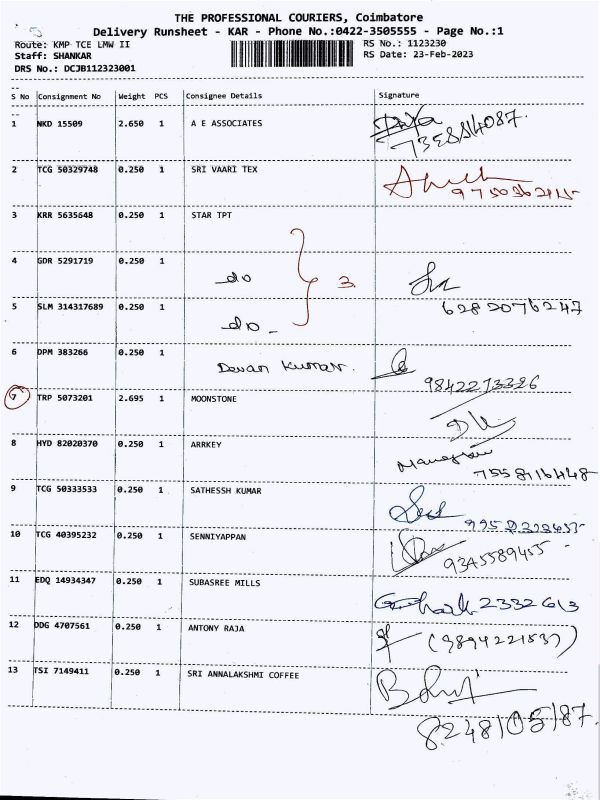 THE PROFESSIONAL COURIERS, Coimbatore
Delivery Runsheet - KAR - Phone No.:0422-3505555 - Page No.:1
Route: KMP TCE LMW II
RS No.: 1123230
Staff: SHANKAR
RS Date: 23-Feb-2023
DRS No.: DCJB112323001
S No Consignment No Weight PCS Consignee Details Signature
1 NKD 15509 2.650 1 A E ASSOCIATES
2 TCG 50329748 0.250 1 SRI VAARI TEX
3 KRR 5635648 0.250 1 STAR TPT
4 GDR 5291719 0.250 1 do 3.
5 SLM 314317689 0.250 1 do - 6282076247
6 DPM 383266 0.250 1 Devan Kumar. 9842273326
TRP 5073201 2.695 1 MOONSTONE
8 HYD 82020370 0.250 1 ARRKEY
9 TCG 50333533 0.250 1 SATHESSH KUMAR
10 TCG 40395232 0.250 1 SENNIYAPPAN 9345589455
11 EDQ 14934347 0.250 1 SUBASREE MILLS 2332613
12 DDG 4707561 0.250 1 ANTONY RAJA (9894221537)
13 TSI 7149411 0.250 1 SRI ANNALAKSHMI COFFEE
8248105187.